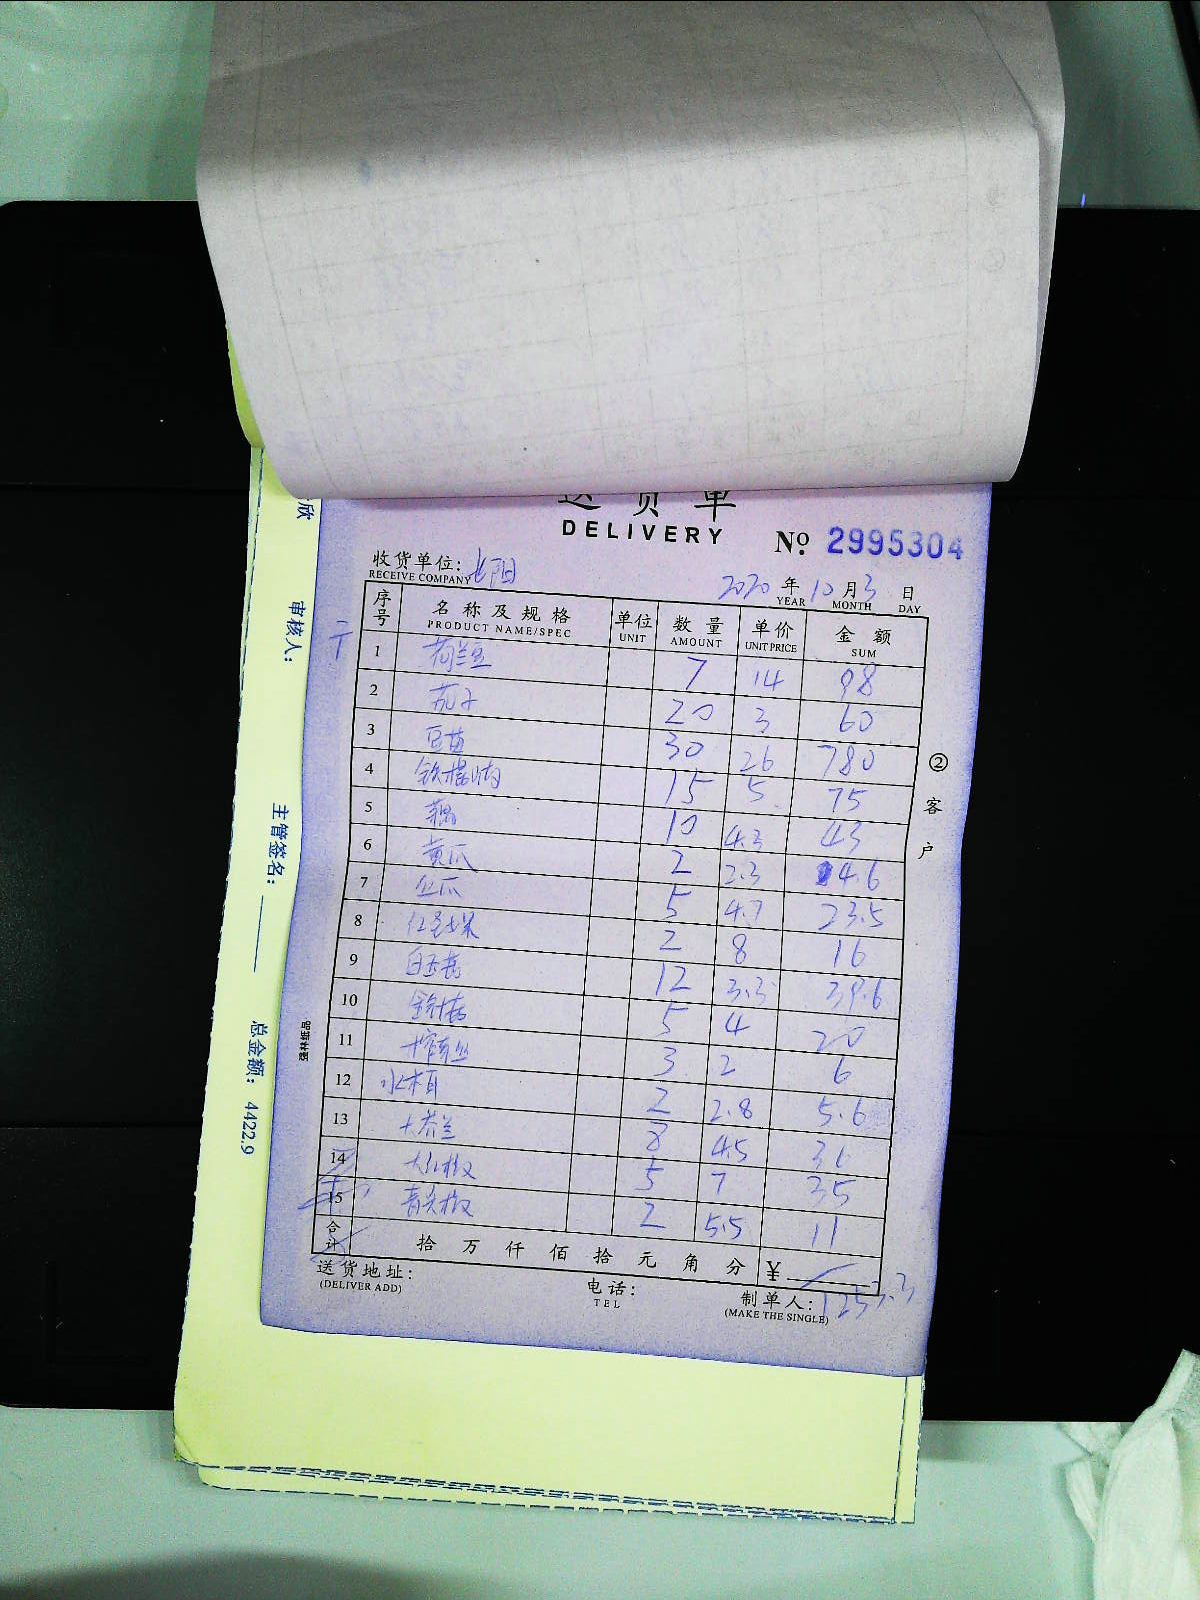 送货单
DELIVERY
No 2995304
收货单位: 长阳
RECEIVE COMPANY
2020 年 10 月 3 日
YEAR MONTH DAY
序号 名称及规格 单位 数量 单价 金额
PRODUCT NAME/SPEC UNIT AMOUNT UNIT PRICE SUM
1 荷兰豆 7 14 98
2 茄子 20 3 60
3 豆苗 30 26 780
4 15 5 75
5 藕 10 4.3 43
6 黄瓜 2 2.3 4.6
7 丝瓜 5 4.7 23.5
8 红圣女果 2 8 16
9 白玉菇 12 3.3 39.6
10 金针菇 5 4 20
11 3 2 6
12 2 2.8 5.6
13 8 4.5 36
14 大红椒 5 7 35
15 青尖椒 2 5.5 11
合计 拾 万 仟 佰 拾 元 角 分 ¥ 1253.3
送货地址:
(DELIVER ADD)
电话:
TEL
制单人:
(MAKE THE SINGLE)
② 客户
强林纸品
欣
审核人:
主管签名:
总金额: 4422.9